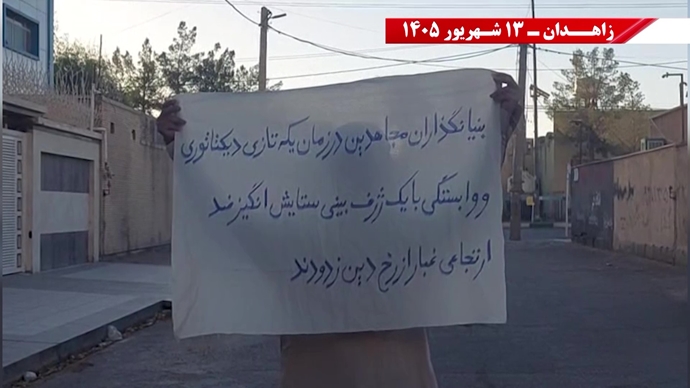 زاهدان ـ ۱۳ شهریور ۱۴۰۵
بنیانگذاران مجاهدین در زمان یکه تازی دیکتاتوری
و وابستگی با یک ژرف بینی ستایش انگیز ضد
ارتجاعی غبار از رخ دین زدودند